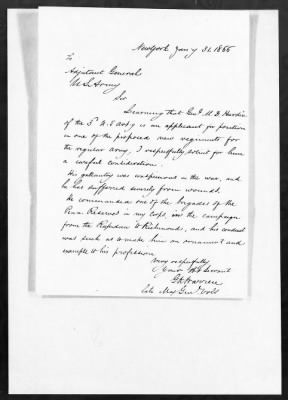 New York Jany 31. 1866
To
Adjutant General
U S Army
Sir
Learning that Genl M. D. Hardin
of the 3d U.S. arty is an applicant for position
in one of the proposed new regiments for
the regular army, I respectfully solicit for him
a careful consideration.
His gallantry was conspicuous in the war, and
he has suffered severely from wounds.
He commanded one of the brigades of the
Penn Reserves in my corps, in the campaign
from the Rapidan to Richmond, and his conduct
was such as to make him an ornament and
example to his profession
Very respectfully
Your Obt Servant
G K Warren
late Maj Genl Vols